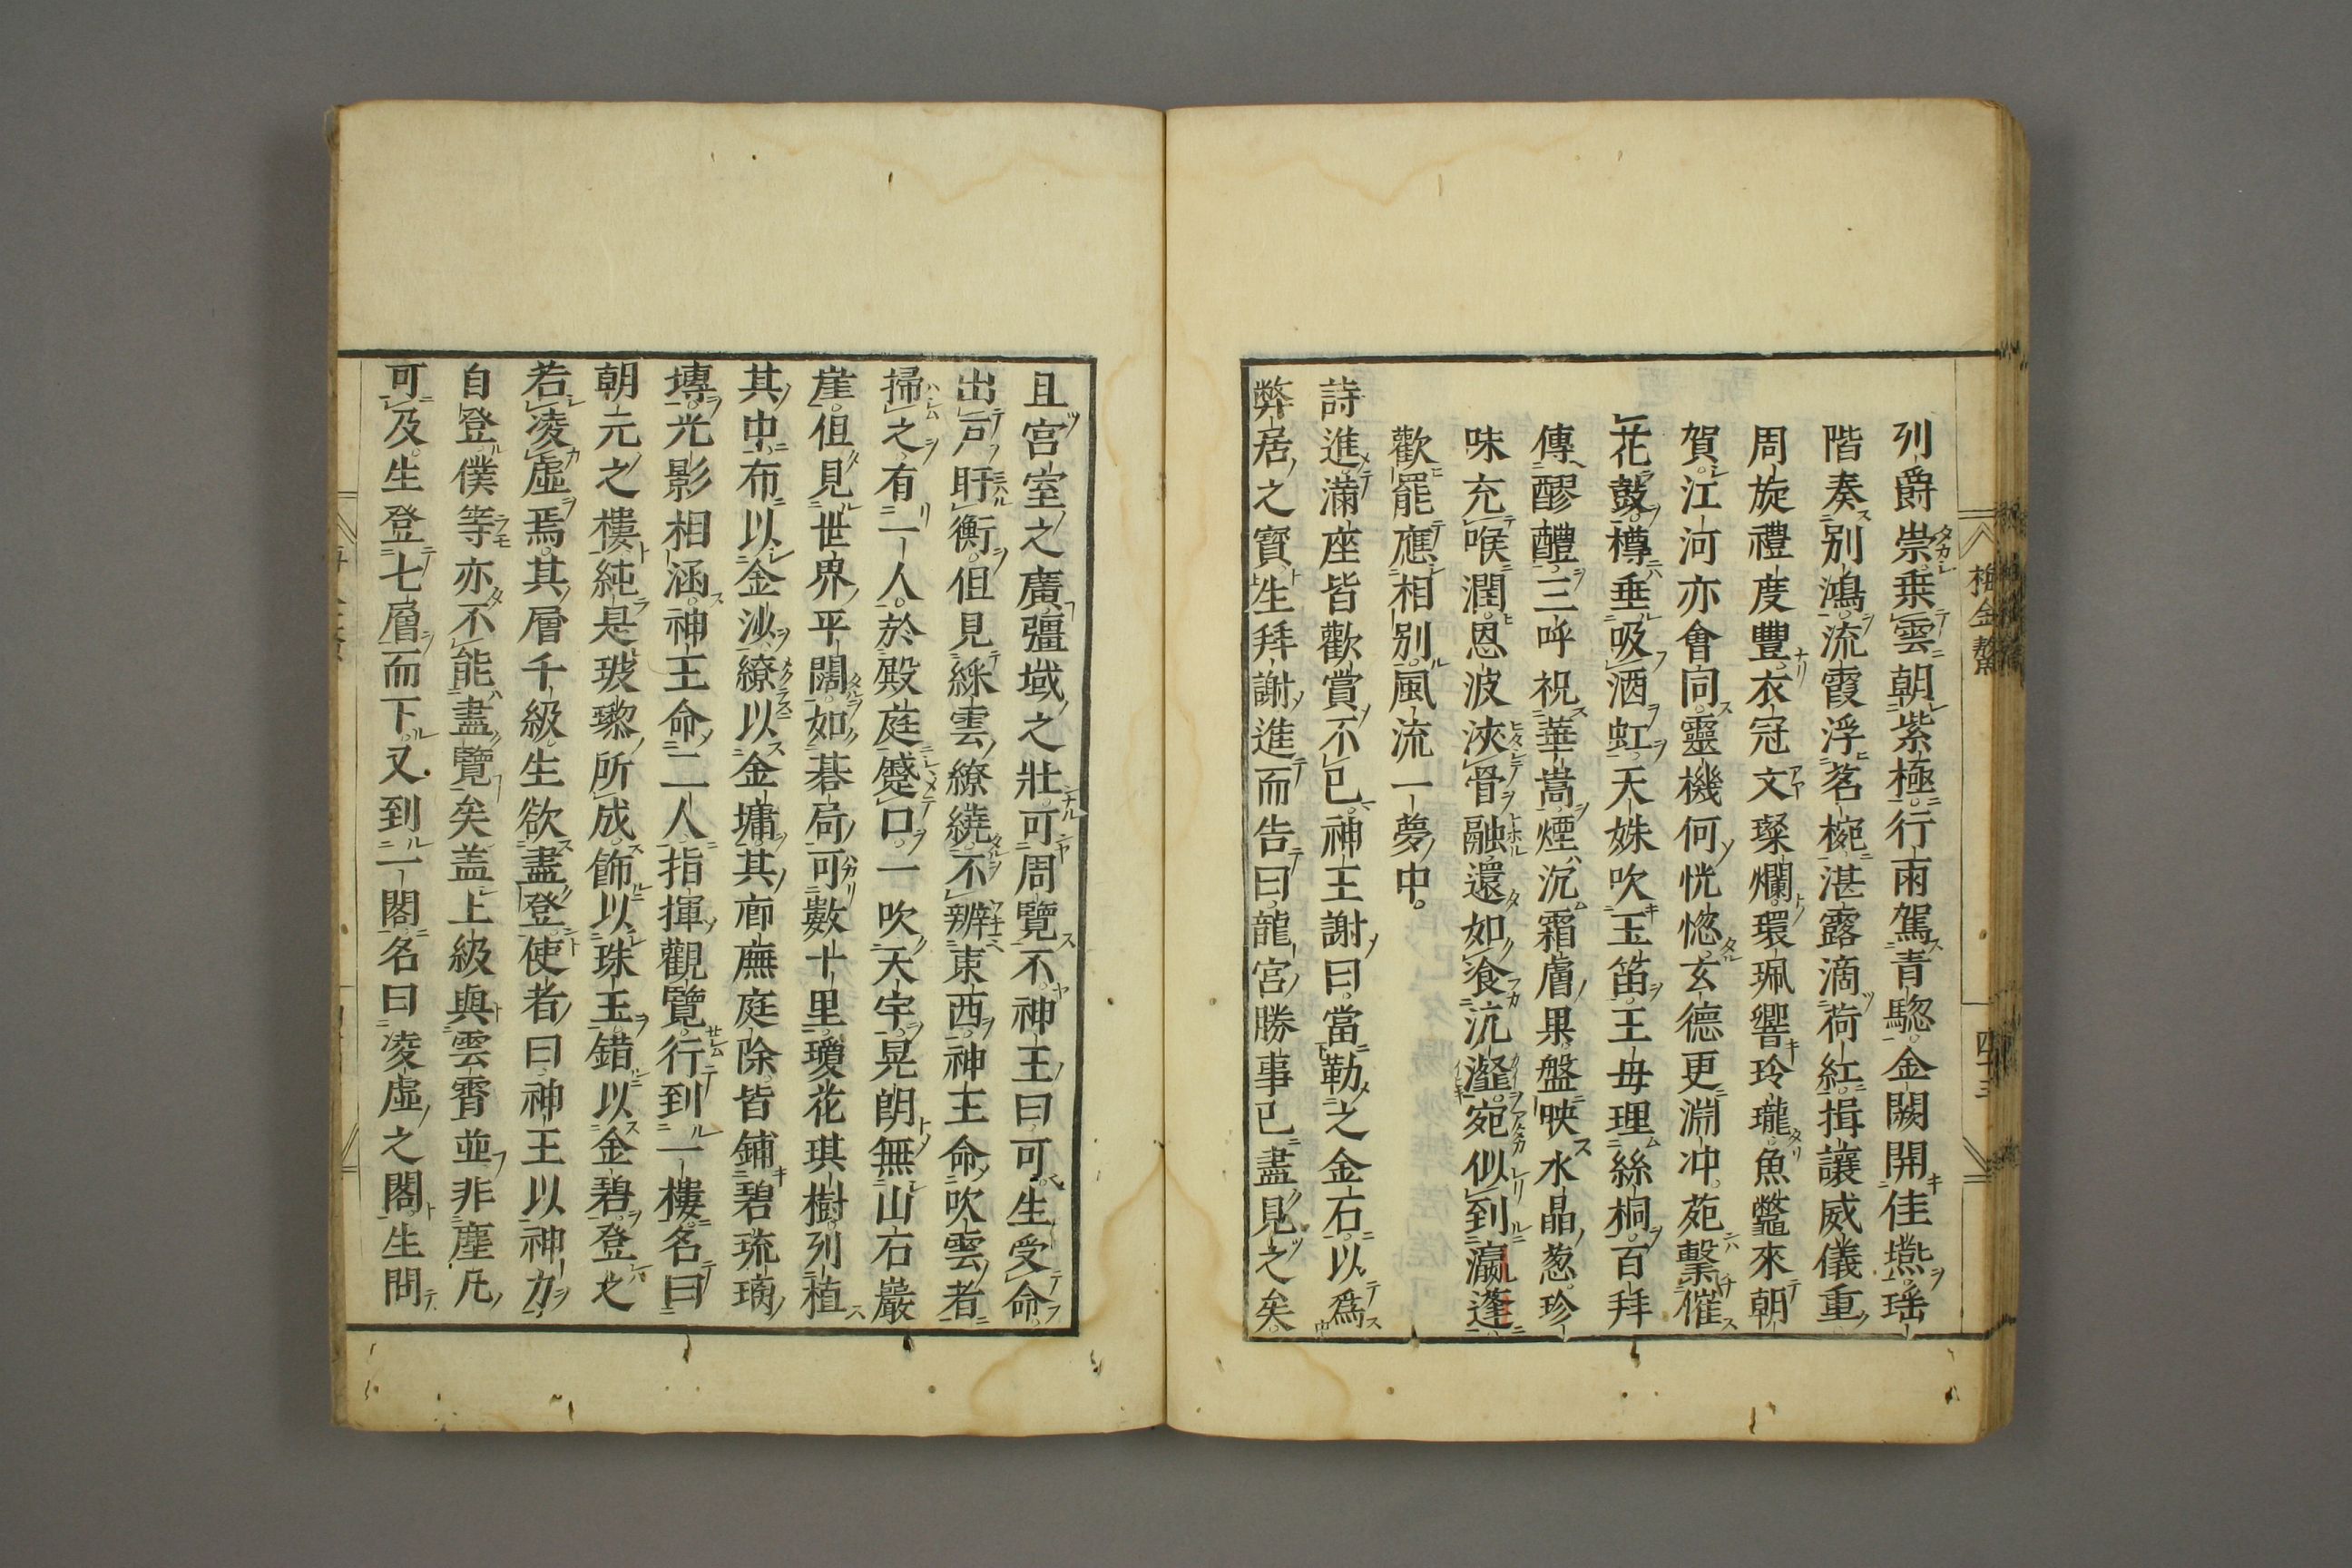 列爵崇乗雲朝紫極行雨駕青驄金闕開佳讌瑶
階奏別鴻流霞浮茗椀湛露滴荷紅揖讓威儀重
周旋禮度豐衣冠文璨爛環珮響玲瓏魚鼈來朝
賀江河亦會同靈機何恍惚玄德更淵冲苑擊催
花鼓樽垂吸酒虹天姝吹玉笛王母理絲桐百拜
傳醪醴三呼祝華嵩煙沉霜膚果盤映水晶葱珍
味充喉潤恩波浹骨融還如飡沆瀣宛似到瀛蓬
歡罷應相別風流一夢中
詩進滿座皆歡賞不已神王謝曰當勒之金石以爲
弊居之寳生拜謝進而告曰龍宮勝事已盡見之矣
搯金鰲
四十三
且宮室之廣彊域之壯可周覽不神王曰可生受命
出戸盱衡但見綵雲繚繞不辨東西神王命吹雲者
掃之有一人於殿庭蹙口一吹天宇晃朗無山石巖
崖但見世界平闊如碁局可數十里瓊花琪樹列植
其中布以金沙繚以金墉其廊廡庭除皆鋪碧琉璃
塼光影相涵神王命二人指揮觀覽行到一樓名曰
朝元之樓純是玻瓈所成飾以珠玉錯以金碧登之
若凌虛焉其層千級生欲盡登使者曰神王以神力
自登僕等亦不能盡覽矣盖上級與雲霄並非塵凡
可及生登七層而下又到一閣名曰凌虛之閣生問